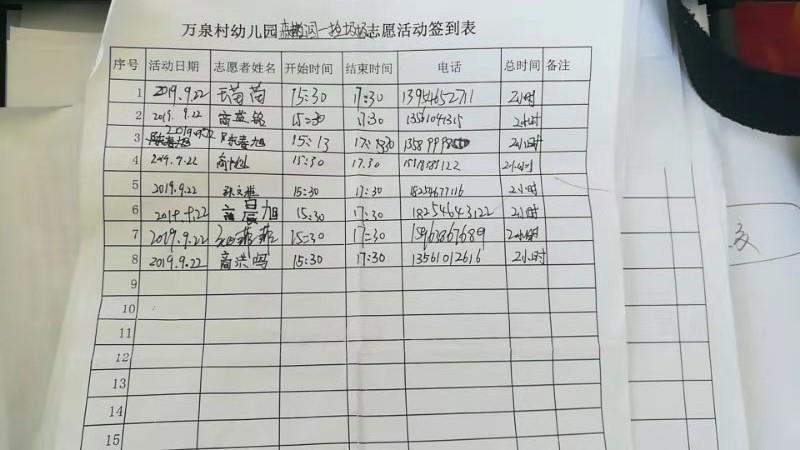 万泉村幼儿园 捡垃圾志愿活动签到表
序号 活动日期 志愿者姓名 开始时间 结束时间 电话 总时间 备注
1 2019.9.22 苗苗 15:30 17:30 13954652711 2小时
2 2019.9.22 商 15:30 17:30 13561041315 2小时
3 2019.9.22 陈春旭 15:13 2小时
4 2019.9.22 商 15:30 17:30 2小时
5 2019.9.22 15:30 17:30 18254677116 2小时
6 2019.9.22 商晨旭 15:30 17:30 18254643122 2小时
7 2019.9.22 菲菲 15:30 17:30 15963867689 2小时
8 2019.9.22 商洪鸣 15:30 17:30 13561012616 2小时
9
10
11
12
13
14
15